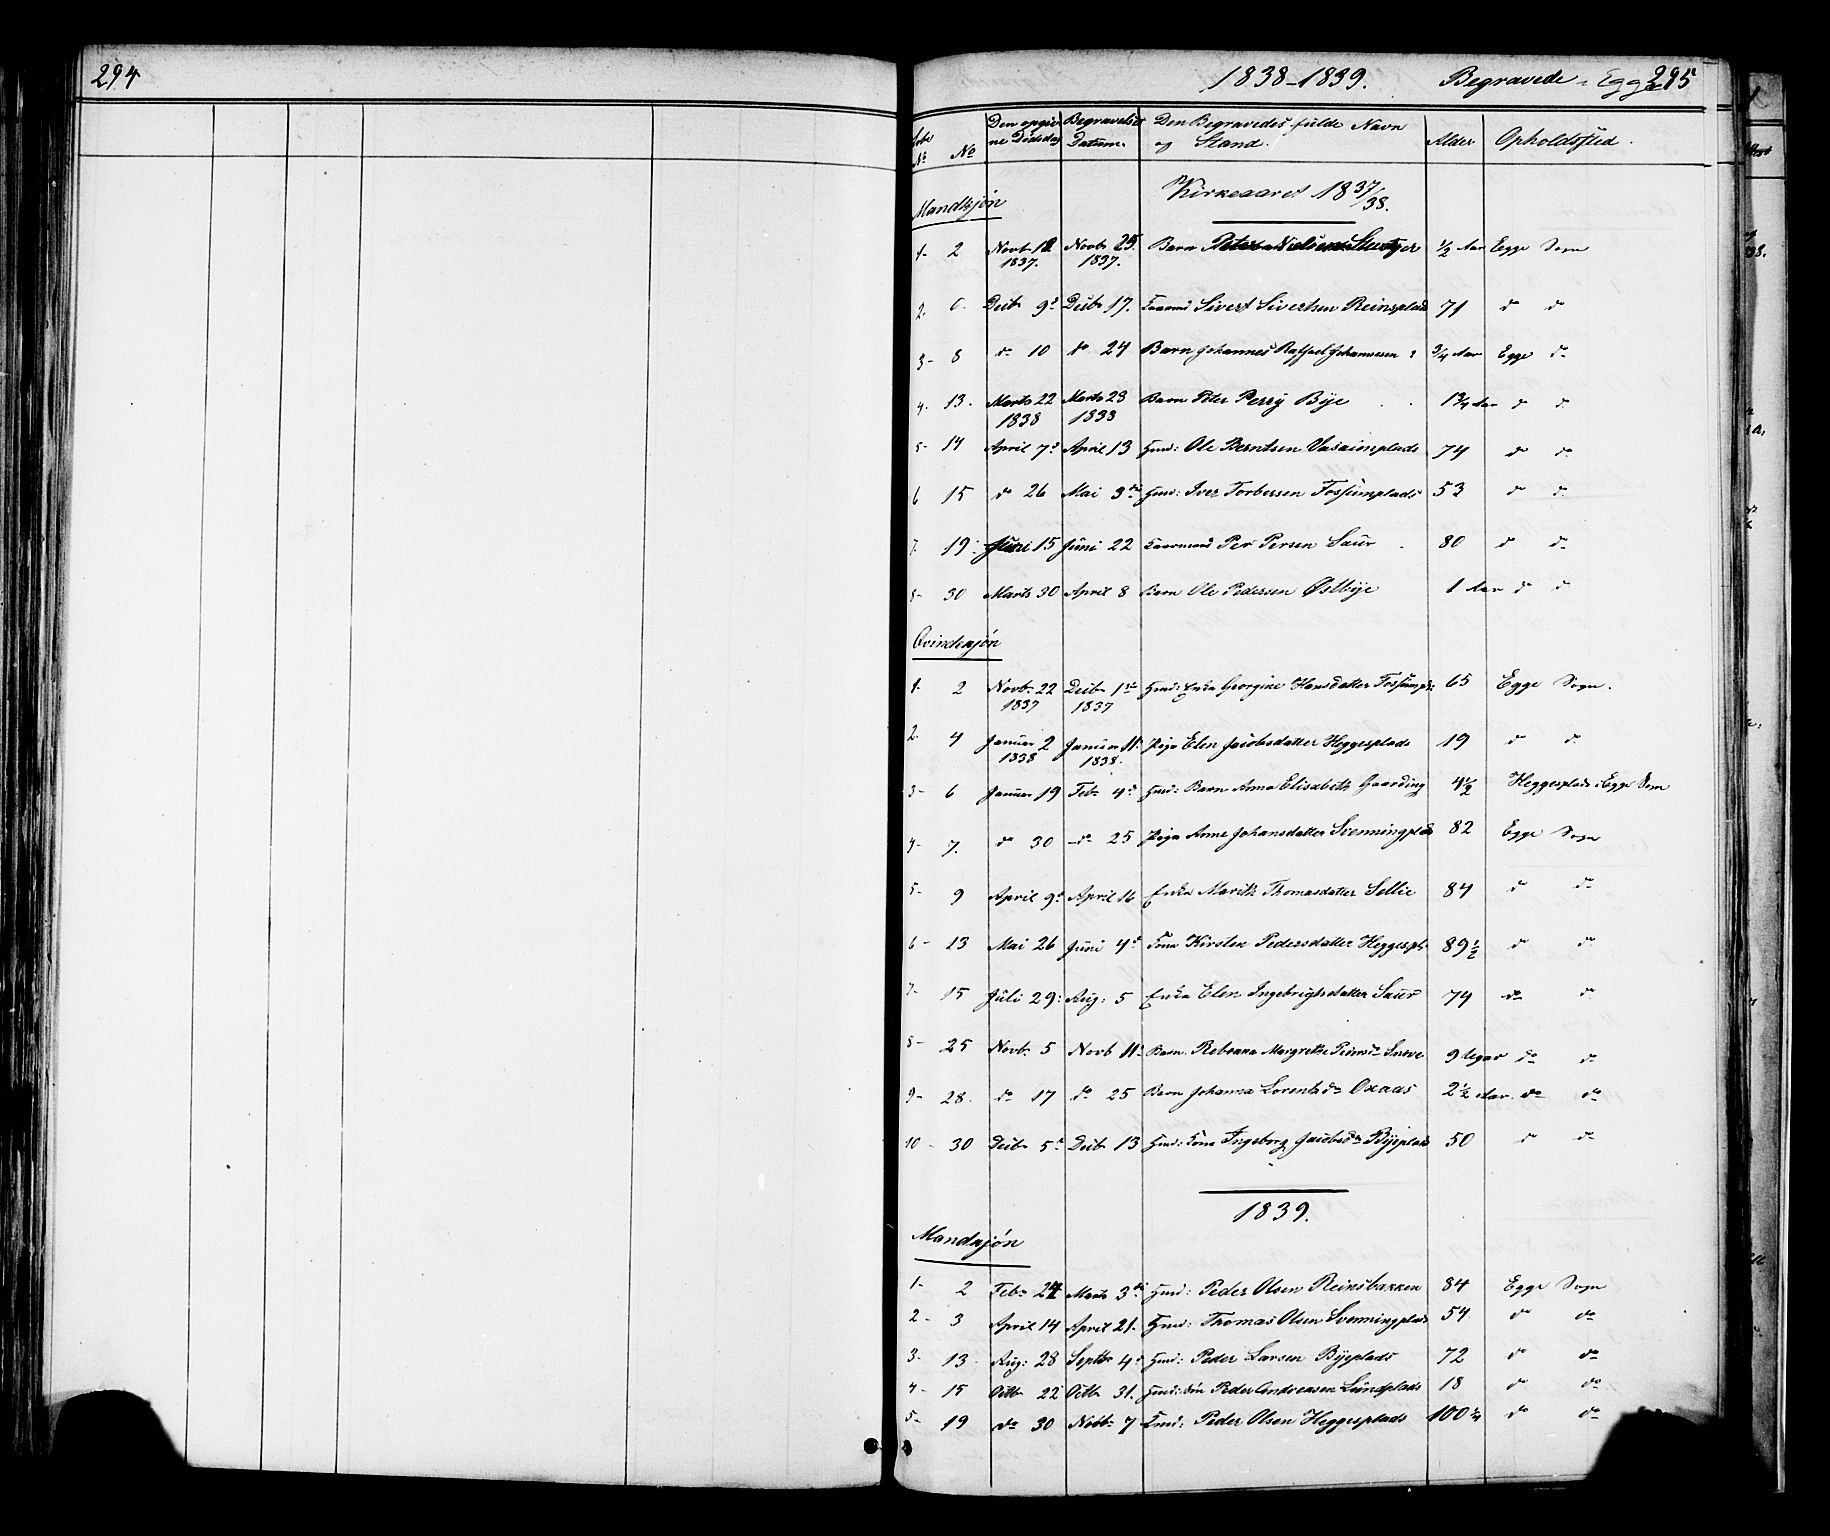 294
1838-1839. Begravede i Egge 295
Løbe No No Den opgivne Dödsdag Begravelses Datum. Den Begravedes fulde Navn og Stand. Alder Opholdssted.
Kirkeaaret 1837/38.
Mandkjøn
1- 2 Novb 1837. Novb 25 1837. Barn Peter Nielsen ½ Aar Egge Sogn
2. 6. Decbr 9d Decbr 17. Sivert Sivertsen Reinsplads 71 do do
3- 8 do 10 do 24 Barn Johannes Johannesen ¾ Aar Egge do
4. 13. Marts 22 1838 Marts 23 1838 Barn Peter Perry Bye 1¾ Aar do do
5- 14 April 7d April 13 Huusmd: Ole Berntsen 74 do do
6 15 do 26 Mai 3die Huusmd: Iver Torbersen Fossumplads 53 do do
7. 19. Juni 15 Juni 22 Per Persen Saur 80 do do
8- 30 Marts 30 April 8 Barn Ole Pedersen Østbye 1 Aar do do
Qvindekjön
1. 2 Novb. 22 1837 Decbr 1ste 1837 Huusmd: Enke Georgine Hansdatter Fossumpl: 65 Egge Sogn.
2. 4 Januar 2 1838 Januar 11. 1838. Pige Elen Jacobsdatter Heggesplads 19 do do
3- 6 Januar 19 Feb. 4d Huusmd: Barn Anna Elisabeth Gaarding 4½ Heggesplads i Egge Sogn
4- 7. do 30 do 25 Pige Anne Johansdatter Svenningplads 82 Egge Sogn
5- 9 April 9d April 16 Enke Marith Thomasdatter Sellie 84 do do
6- 13 Mai 26 Juni 4d Kone Kirsten Pedersdatter Heggespl. 89½ do do
7- 15 Juli 29: Aug: 5 Enke Elen Ingebrigtsdatter Saur 74 do do
8- 25 Novb. 5 Novb 11. Barn Rebekka Margrethe 9 Uger do do
9- 28. do 17 do 25 Barn Johanna Lorentsdr Oxaas 2½ Aar. do do
10- 30 Decbr 5d Decbr 13 Huusmd: Kone Ingeborg Jacobsdr Byeplads 50 do do
1839.
Mandkjön
1- 2 Febr 24 Marts 3die Huusmd: Peder Olsen Reinsbakken 84 Egge Sogn
2- 3 April 14 April 21. Huusmd: Thomas Olsen Svenningplads 54 do do
3- 13 Aug: 28 Septbr 4d Huusmd: Peder Larsen Byeplads 72 do do
4- 15 Octbr 22 Octbr 31. Huusmd: Sön Peder Andreasen Lundplads 18 do do
5- 19 do 30 Novbr 7 Peder Olsen Heggesplads 100¼ do do